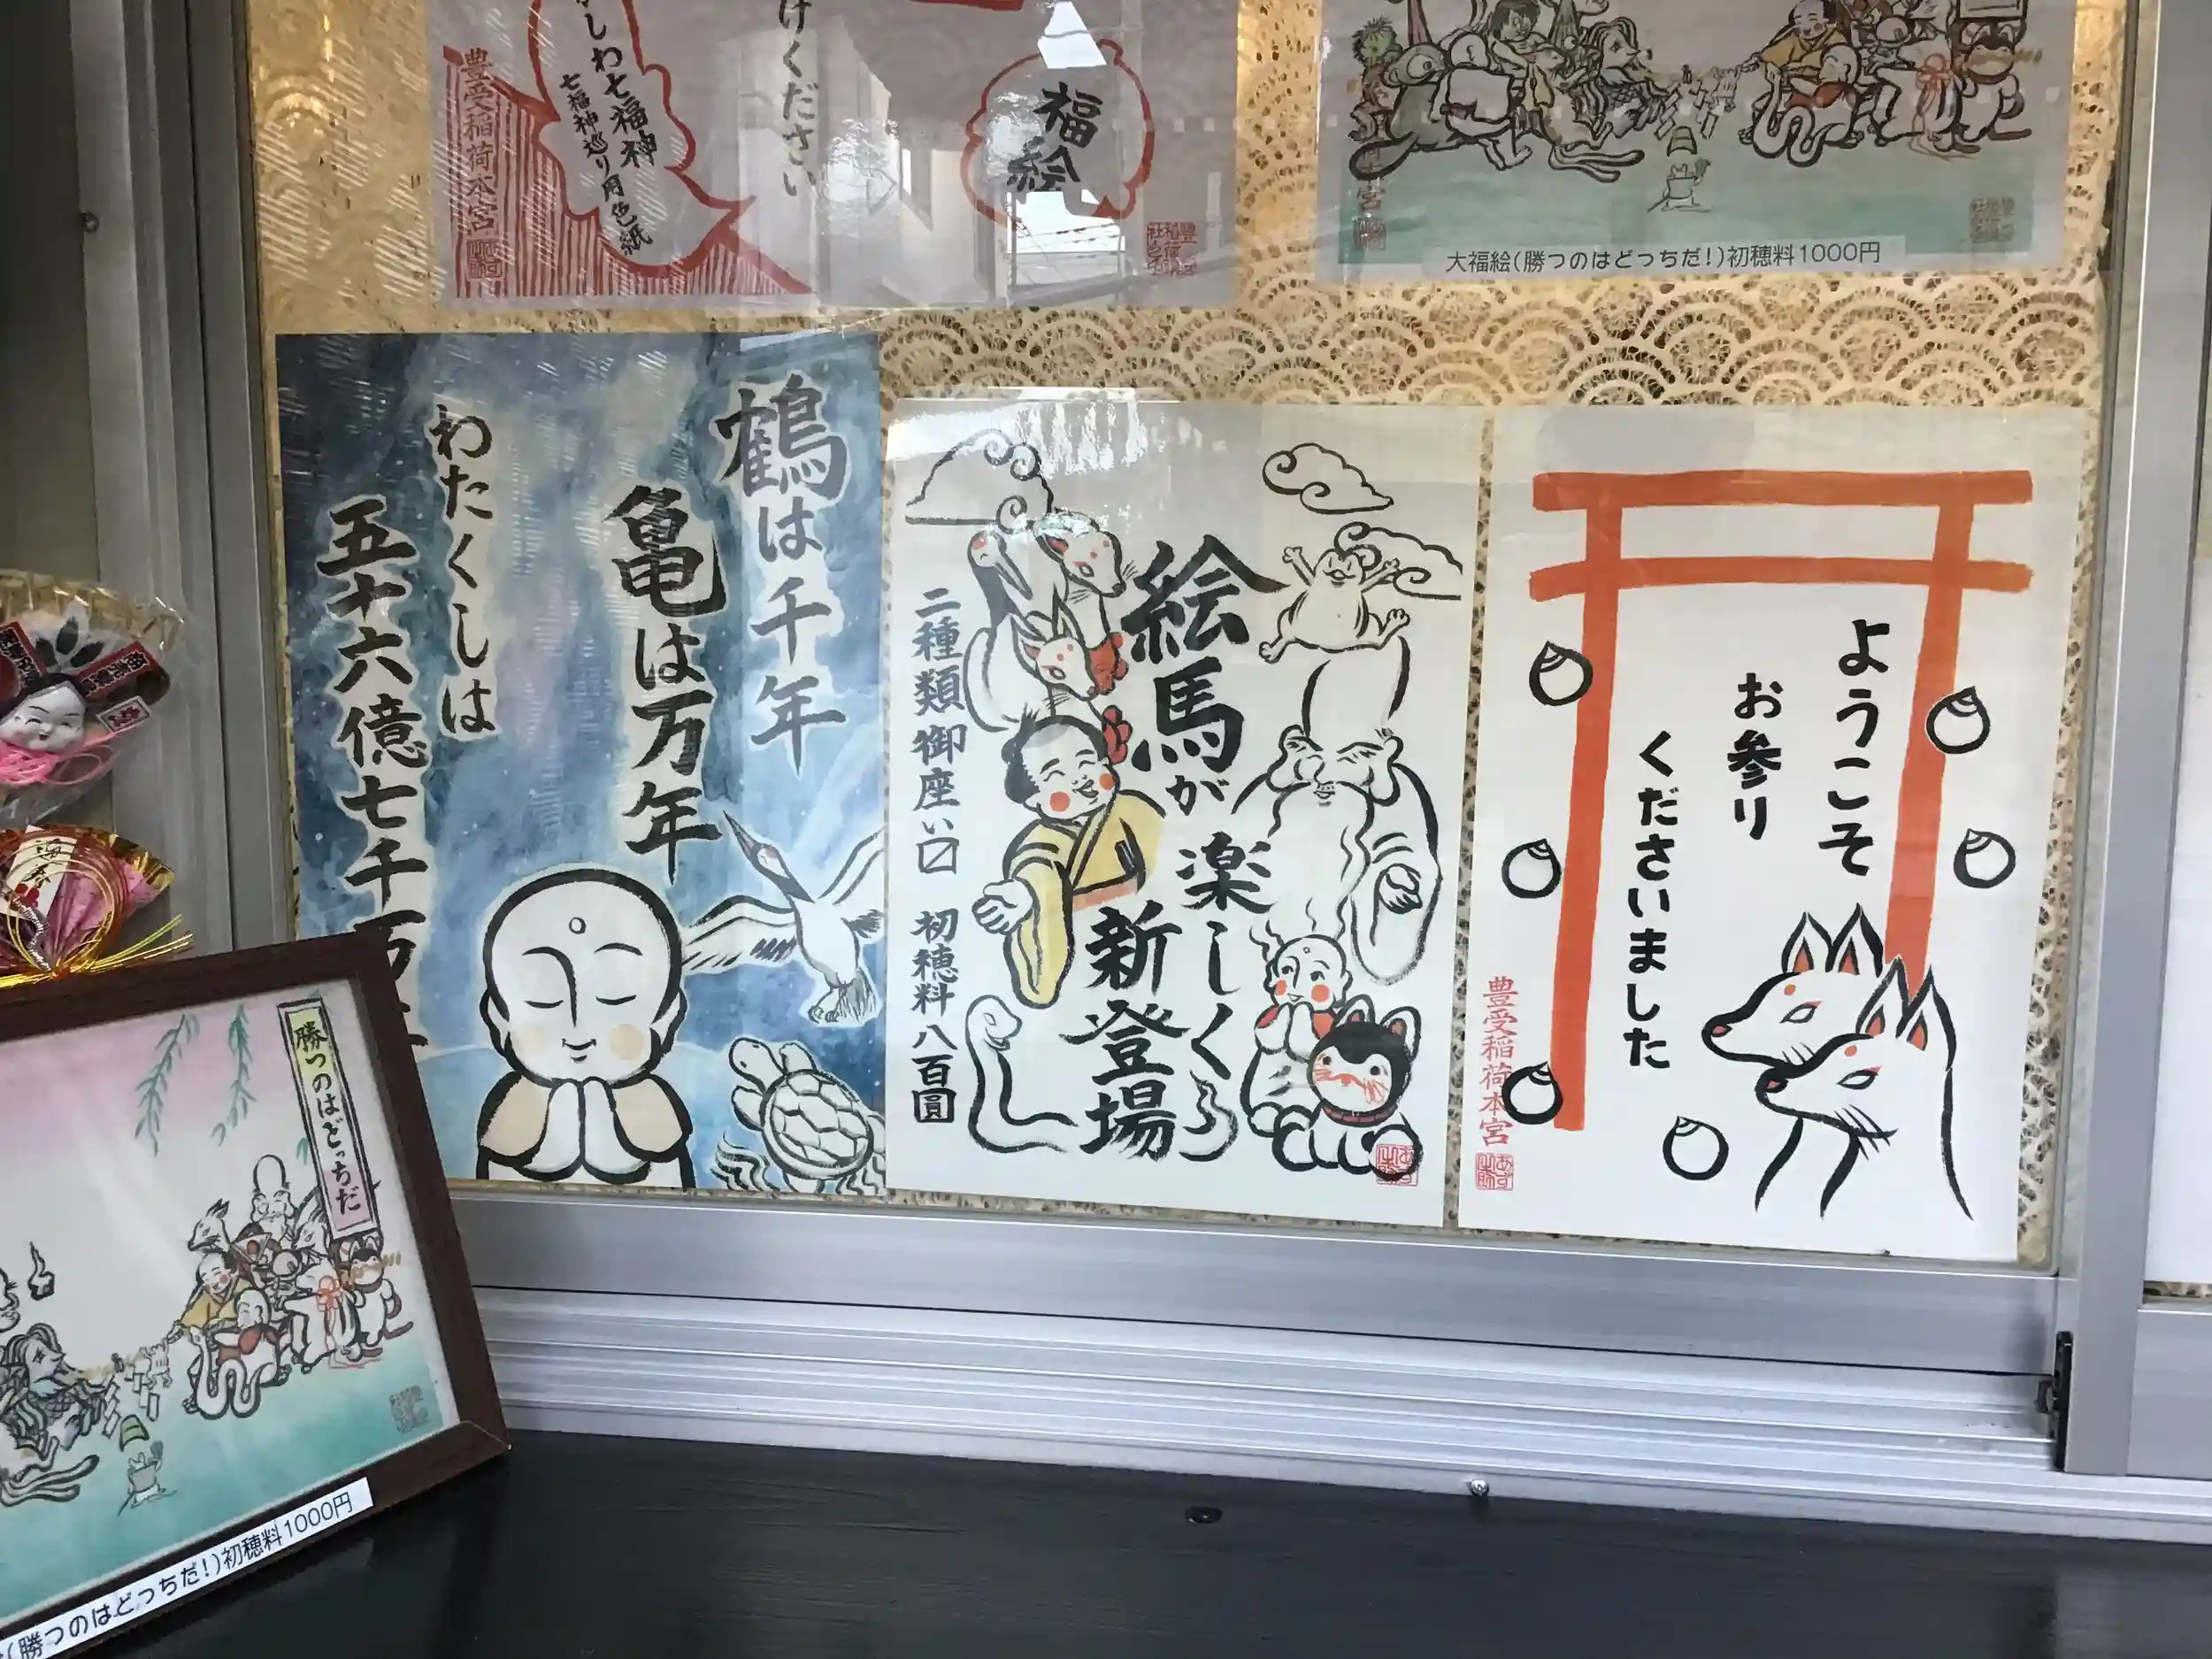 けください
福絵
しわ七福神
七福神巡り用色紙
豊受稲荷本宮
大福絵(勝つのはどっちだ!)初穂料1000円
鶴は千年
亀は万年
わたくしは
五十六億七千万年
絵馬が
楽しく
新登場
二種類御座い〼
初穂料八百圓
ようこそ
お参り
くださいました
豊受稲荷本宮
勝つのはどっちだ
(勝つのはどっちだ!)初穂料1000円